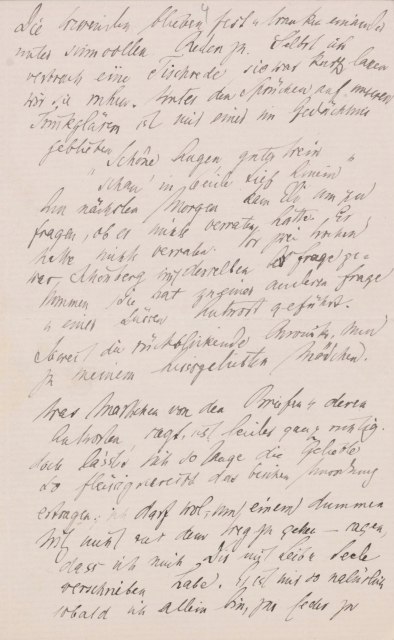 Die Freunden blieben fest u tranken einander
unter sinnvollen Reden zu. Selbst ich
verbrach eine Tischrede sie war kurz lassen
wir sie ruhen. Unter den Sprüchen auf unseren
Trinkgläsern ist mir einer im Gedächtnis
geblieben
"Schöne Augen guter Wein
"Schau' in beide tief hinein"
Am nächsten Morgen kam Eli um zu
fragen, ob es mich verraten hätte. Er
habe nicht verraten.
war Schönberg mit derselben Frage ge-
kommen Sie hat zu einer anderen Frage
u einer süssen Antwort geführt.
Soweit die rückblickende Chronik, nun
zu meinem herzgeliebten Mädchen.
Was Marthchen von den Briefen u deren
Antworten sagt, ist leider ganz richtig.
doch lässt sich so lange die Geliebte
so fleissig schreibt das bischen Unordnung
ertragen; ich darf wol, um einem dummen
Witz nicht aus dem Weg zu gehen – sagen,
dass ich mich Dir mit Leib u Seele
verschrieben habe. Es ist mir so natürlich
sobald ich allein bin, zur Feder zu